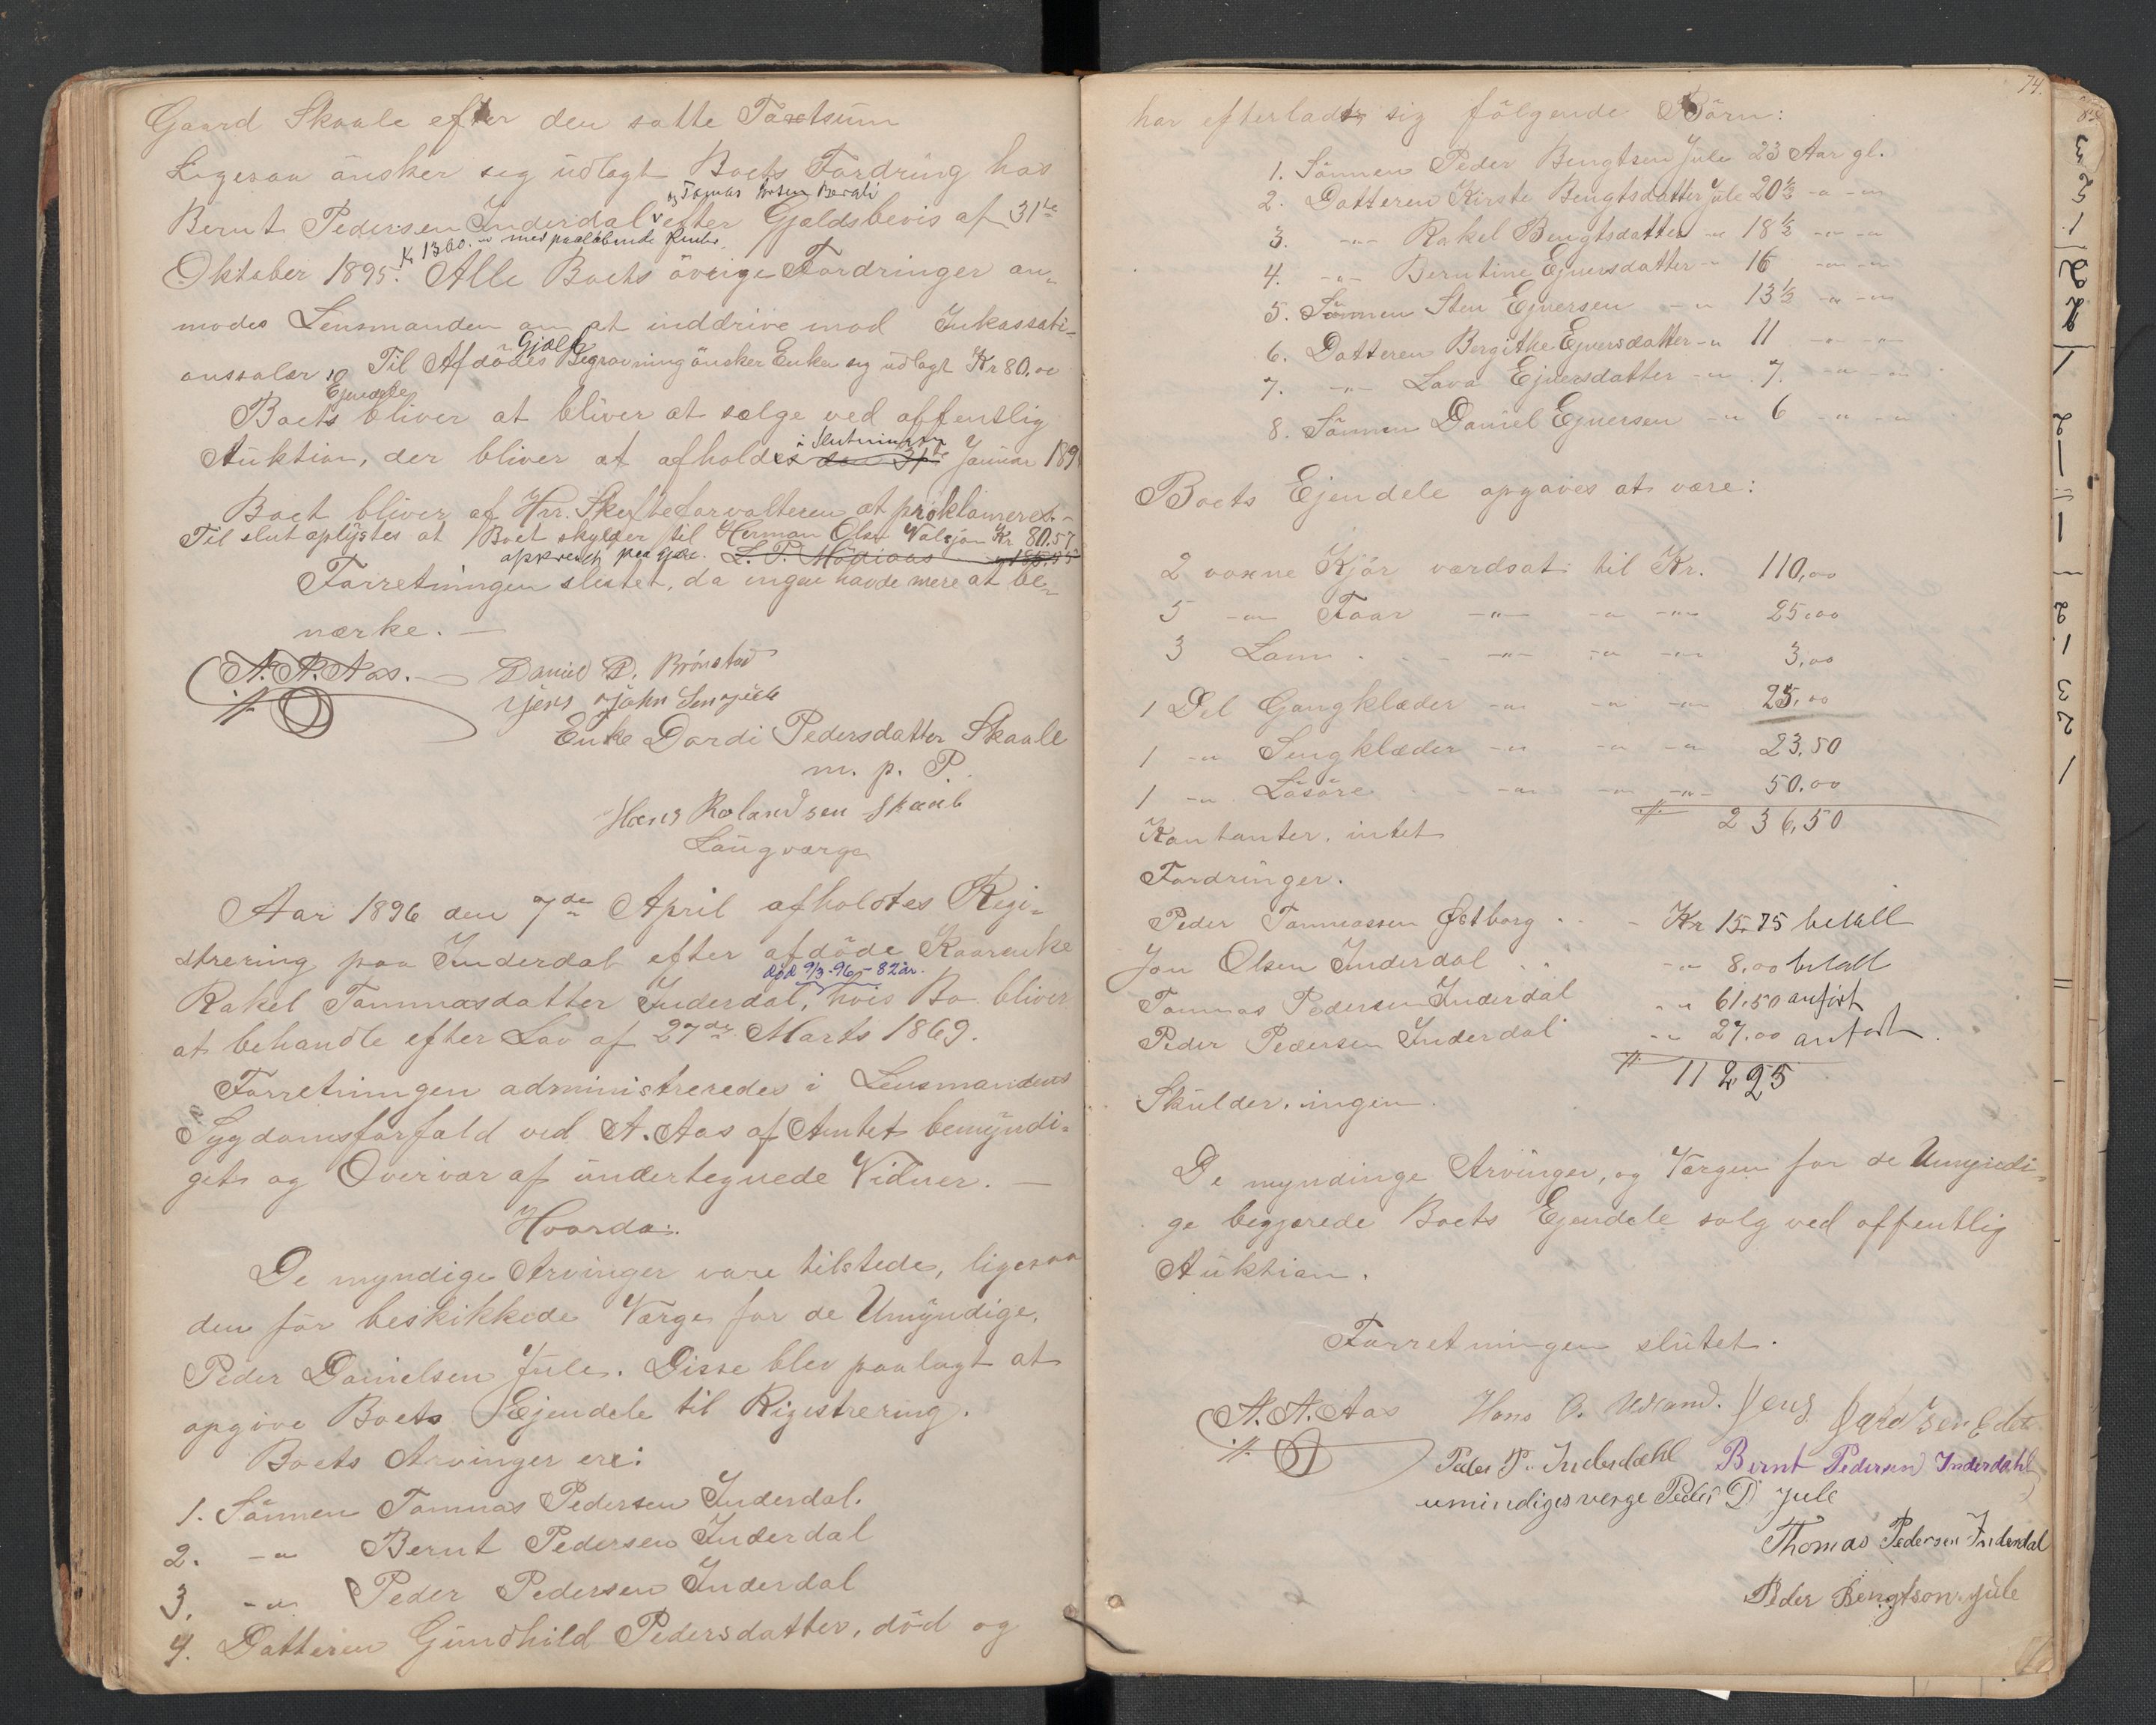 Gaard Skaale efter den satte Taxtsum
Ligesaa önsker seg udlagt Boets Fordring hos
og Tomas
Bernt Pedersen Inderdal efter Gjældsbevis af 31te
Kr 1360. med paaløbende Renter.
Oktober 1895. Alle Boets övrige Fordringer an-
modes Lensmanden om at inddrive mod Inkassati-
onssalær Til Afdödes Begravning önsker Enken sig udlagt Kr 80,00
Gjæld
Ejendele
Boets bliver at bliver at sælge ved offentlig
i Slutningen
Auktion, der bliver at afholdes den 31te Januar 189
Boet bliver af Hrr. Skifteforvalteren at proklameres.-
Til slut oplystes at Boet skylder til Herman Olsen Valsjön Kr 80.57
L. P. Möniaas
Forretningen sluttet, da ingen havde mere at be-
mærke. —
A. A. Aas. Daniel D. Brönstad
Jens John Sen
Enke Dordi Pedersdatter Skaale
m. p. P.
Hans Rolandsen Skaale
Laugværge
Aar 1896 den 7de April afholdtes Regi-
strering paa Inderdal efter afdöde Kaarenke
død 9/3-96 - 82 år.
Rakel Tommasdatter Inderdal, hvis Bo bliver
at behandle efter Lov af 27de Marts 1869.
Forretningen administreredes i Lensmandens
Sygdomsforfald ved A. Aas af Amtet bemyndi-
get og Overvær af undertegnede Vidner. —
Hvorda:
De myndige Arvinger vare tilstede, ligesaa
den för beskikkede Værge for de Umyndige,
Peder Danielsen Jule. Disse blev paalagt at
opgive Boets Ejendele til Rigestrering.
Boets Arvinger ere:
1. Sönnen Tommas Pedersen Inderdal.
2. -"- Bernt Pedersen Inderdal
3. -"- Peder Pedersen Inderdal
4. Datteren Gundhild Pedersdatter, död og
74.
har efterladt sig fölgende Börn:
1. Sönnen Peder Bengtsen Jule 23 Aar gl.
2. Datteren Kirste Bengtsdatter Jule 20½ -"-"
3. -"- Rakel Bengtsdatter -" 18½ -"-"
4. -"- Berntine Ejversdatter -" 16 -"-"
5. Sönnen Sten Ejversen -" 13½ -"-"
6. Datteren Bergithe Ejversdatter -" 11 -"-"
7. -"- Lava Ejversdatter -" 7. -"-"
8. Sönnen Daniel Ejversen -" 6 -"-"
Boets Ejendele opgaves at være:
2 voxne Kjör værdsat til Kr. 110,00
5 -"- Faar -"- -" -"- 25,00
3 Lam -"- -" -"- 3,00
1 Del Gangklæder -" -" -" 25,00
1 -" Sengklæder -" -" -" 23,50
1 -" Lösöre -" -" -" 50.00
236,50
Kontanter. intet
Fordringer.
Peder Tommassen Østborg Kr 15.75 betalt
Jon Olsen Inderdal -" 8,00 betalt
Tommas Pedersen Inderdal -" 61,50 anført
Peder Pedersen Inderdal -" 27,00 anført
112,25
Skulder. ingen
De myndinge Arvinger, og Værgen for de Umyndi-
ge begjærede Boets Ejendele solg ved offentlig
Auktion.
Forretningen slutet.
A. A. Aas Hans O. Jens
Peder P. Inderdahl Bernt Pedersen Inderdahl
umindiges verge Peder D Jule
Thomas Pedersen Inderdal
Peder Bengtson Jule